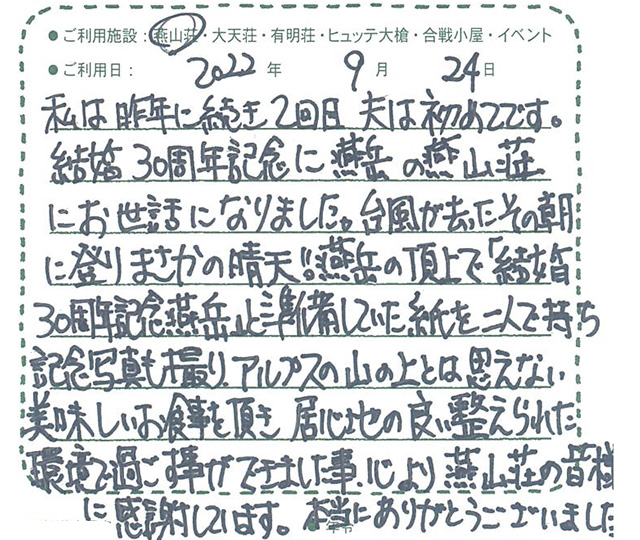 ●ご利用施設：燕山荘・大天荘・有明荘・ヒュッテ大槍・合戦小屋・イベント
●ご利用日： 2022年 9月 24日
私は昨年に続き2回目 夫は初めてです。
結婚30周年記念に燕岳の燕山荘
にお世話になりました。台風が去ったその朝
に登りまさかの晴天!!燕岳の頂上で「結婚
30周年記念燕岳」と準備していた紙を二人で持ち
記念写真も撮り アルプスの山の上とは思えない
美味しいお食事を頂き 居心地の良い整えられた
環境で過ごす事ができました事、心より燕山荘の皆様
に感謝しています。本当にありがとうございました